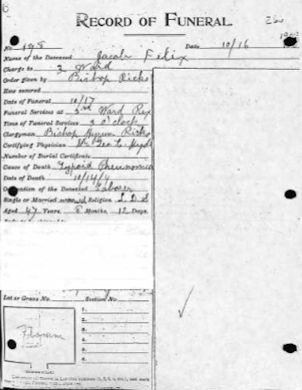 RECORD OF FUNERAL.
No. 198 Date 10/16 190
Name of the Deceased Jacob Felix
Charge to 3 Ward
Order given by Bishop Ricks
How secured
Date of Funeral 10/17
Funeral Services at 3rd Ward Rex
Time of Funeral Services 3 o'clock
Clergyman Bishop Hyrum Ricks
Certifying Physician Dr. Geo. L.
Number of Burial Certificate
Cause of Death Typoid Pneumonia
Date of Death 10/14/4
Occupation of the Deceased Laborer
Single or Married Religion L.D.S
Aged 47 Years, 8 Months, 12 Days.
Lot or Grave No. Section No.
1
2
3
4
5
6